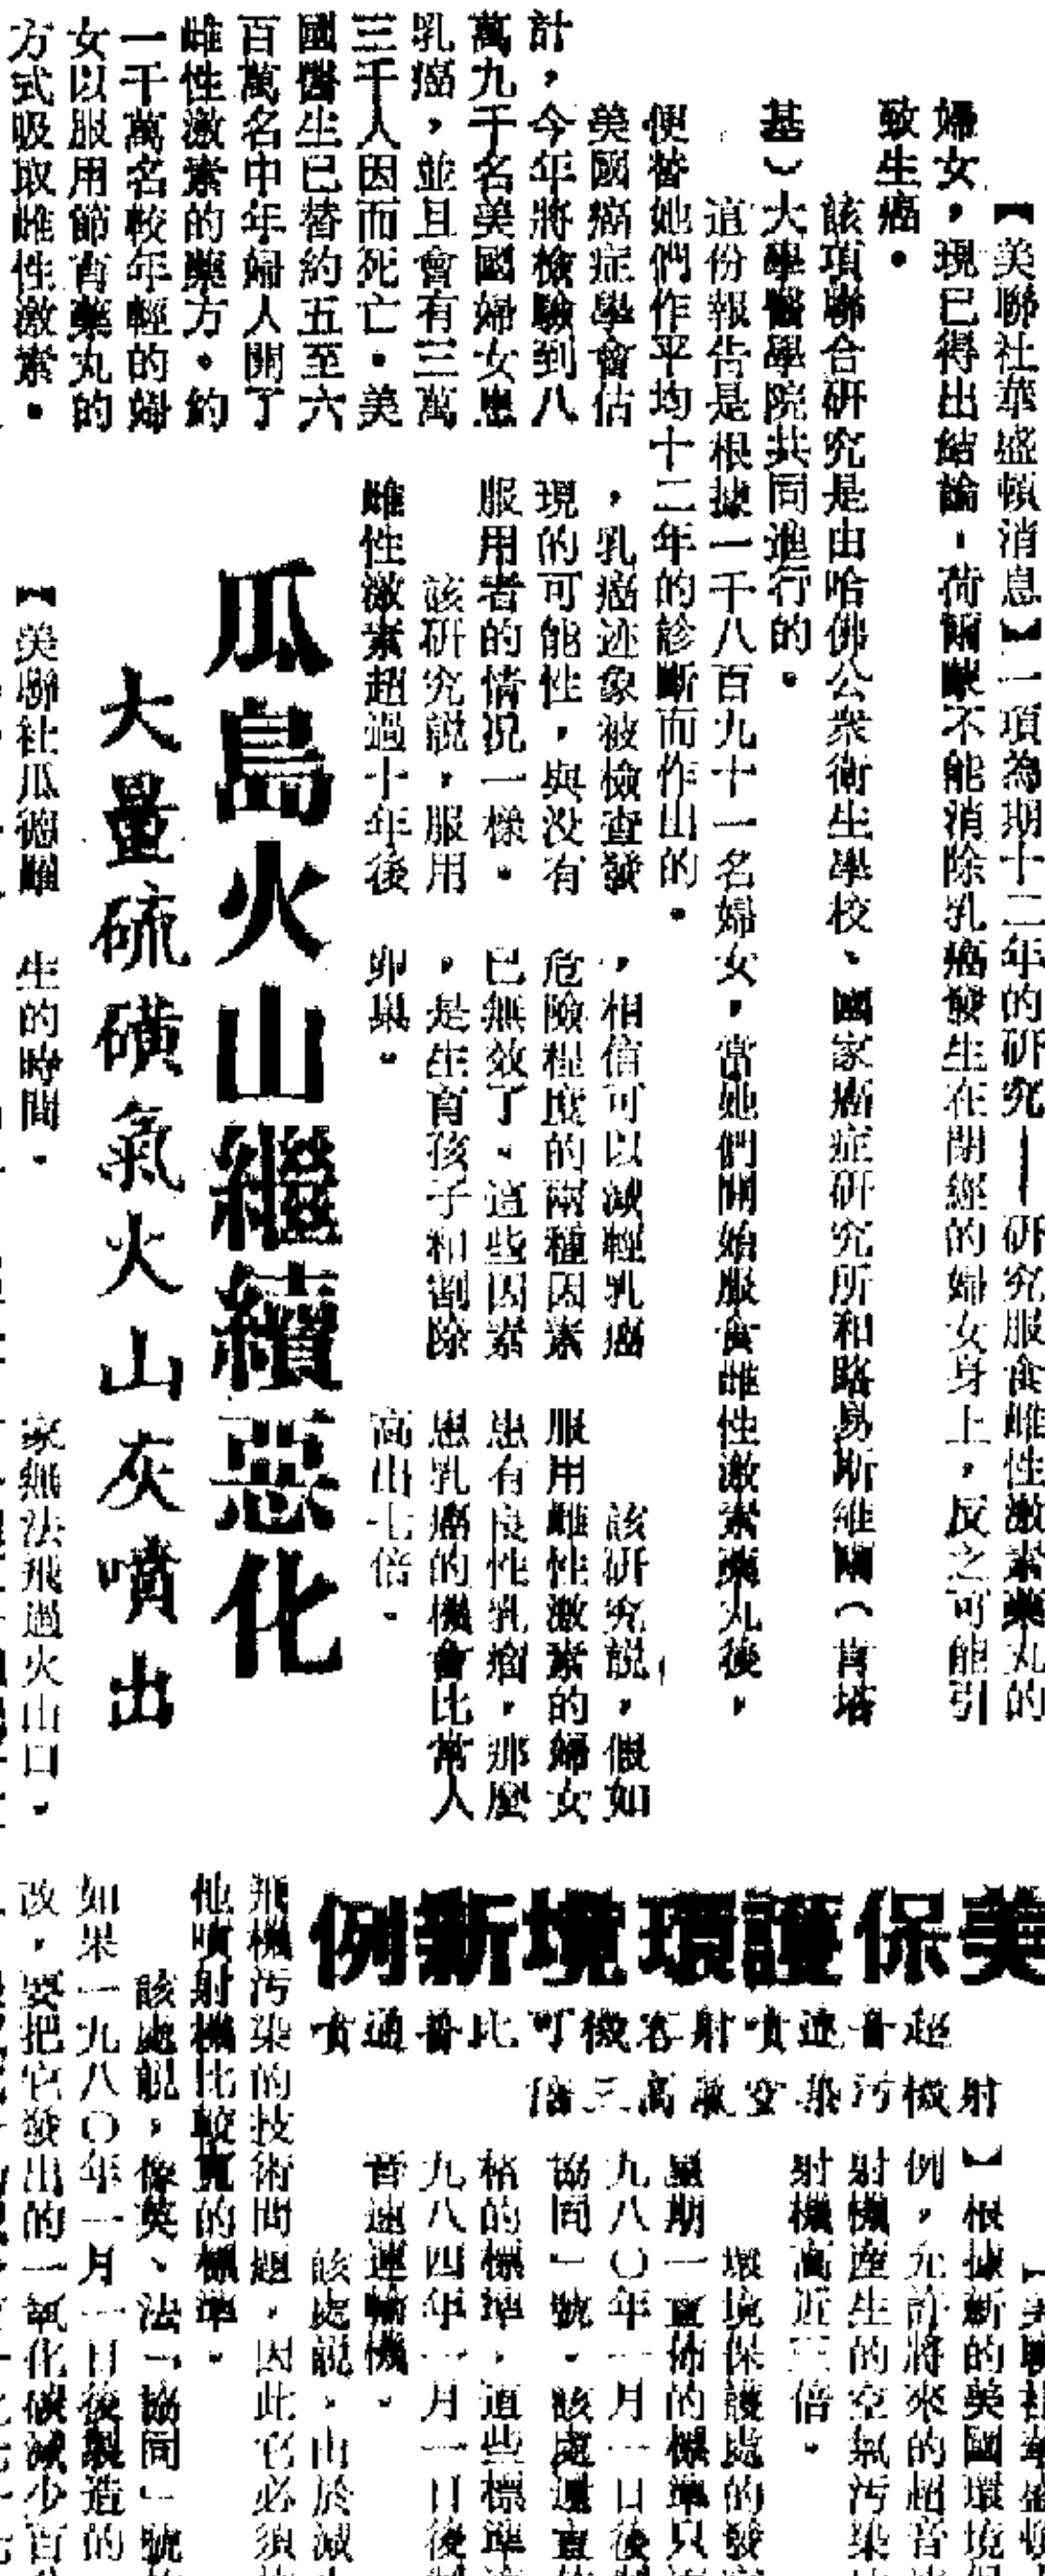 【美聯社華盛頓消息】一項為期十二年的研究——研究服食雌性激素藥丸的
婦女，現已得出結論，荷爾蒙不能消除乳癌發生在閉經的婦女身上，反之可能引
致生癌。
該項聯合研究是由哈佛公衆衛生學校、國家癌症研究所和路易斯維爾（肯塔
基）大學醫學院共同進行的。
這份報告是根據一千八百九十一名婦女，當她們開始服食雌性激素藥丸後，
便替她們作平均十二年的診斷而作出的。
美國癌症學會估
計，今年將檢驗到八
萬九千名美國婦女患
乳癌，並且會有三萬
三千人因而死亡。美
國醫生已替約五至六
百萬名中年婦人開了
雌性激素的藥方。約
一千萬名較年輕的婦
女以服用節育藥丸的
方式吸取雌性激素。
，乳癌迹象被檢查發
現的可能性，與没有
服用者的情况一樣。
該研究説，服用
雌性激素超過十年後
，相信可以减輕乳癌
危險程度的兩種因素
已無效了。這些因素
，是生育孩子和割除
卵巢。
該研究説，假如
服用雌性激素的婦女
患有良性乳瘤，那麼
患乳癌的機會比常人
高出七倍。
瓜島火山繼續惡化
大量硫磺氣火山灰噴出
【美聯社瓜德羅
生的時間。
家無法飛過火山口。
美保護環境新例
超音速噴射客機可比普通噴
射機污染空氣高三倍
【美聯社華盛頓
】根據新的美國環境
例，允許將來的超音
射機產生的空氣污染
射機高近三倍。
環境保護處的發
星期一宣佈的標準只
九八〇年一月一日後
協同」號。該處還宣
格的標準，這些標準
九八四年一月一日後
音速運輸機。
該處説，由於减
飛機污染的技術問題，因此它必須
他噴射機比較寬的標準。
該處説，像英、法「協同」號
如果一九八〇年一月一日後製造的
改，要把它發出的一氧化碳减少百